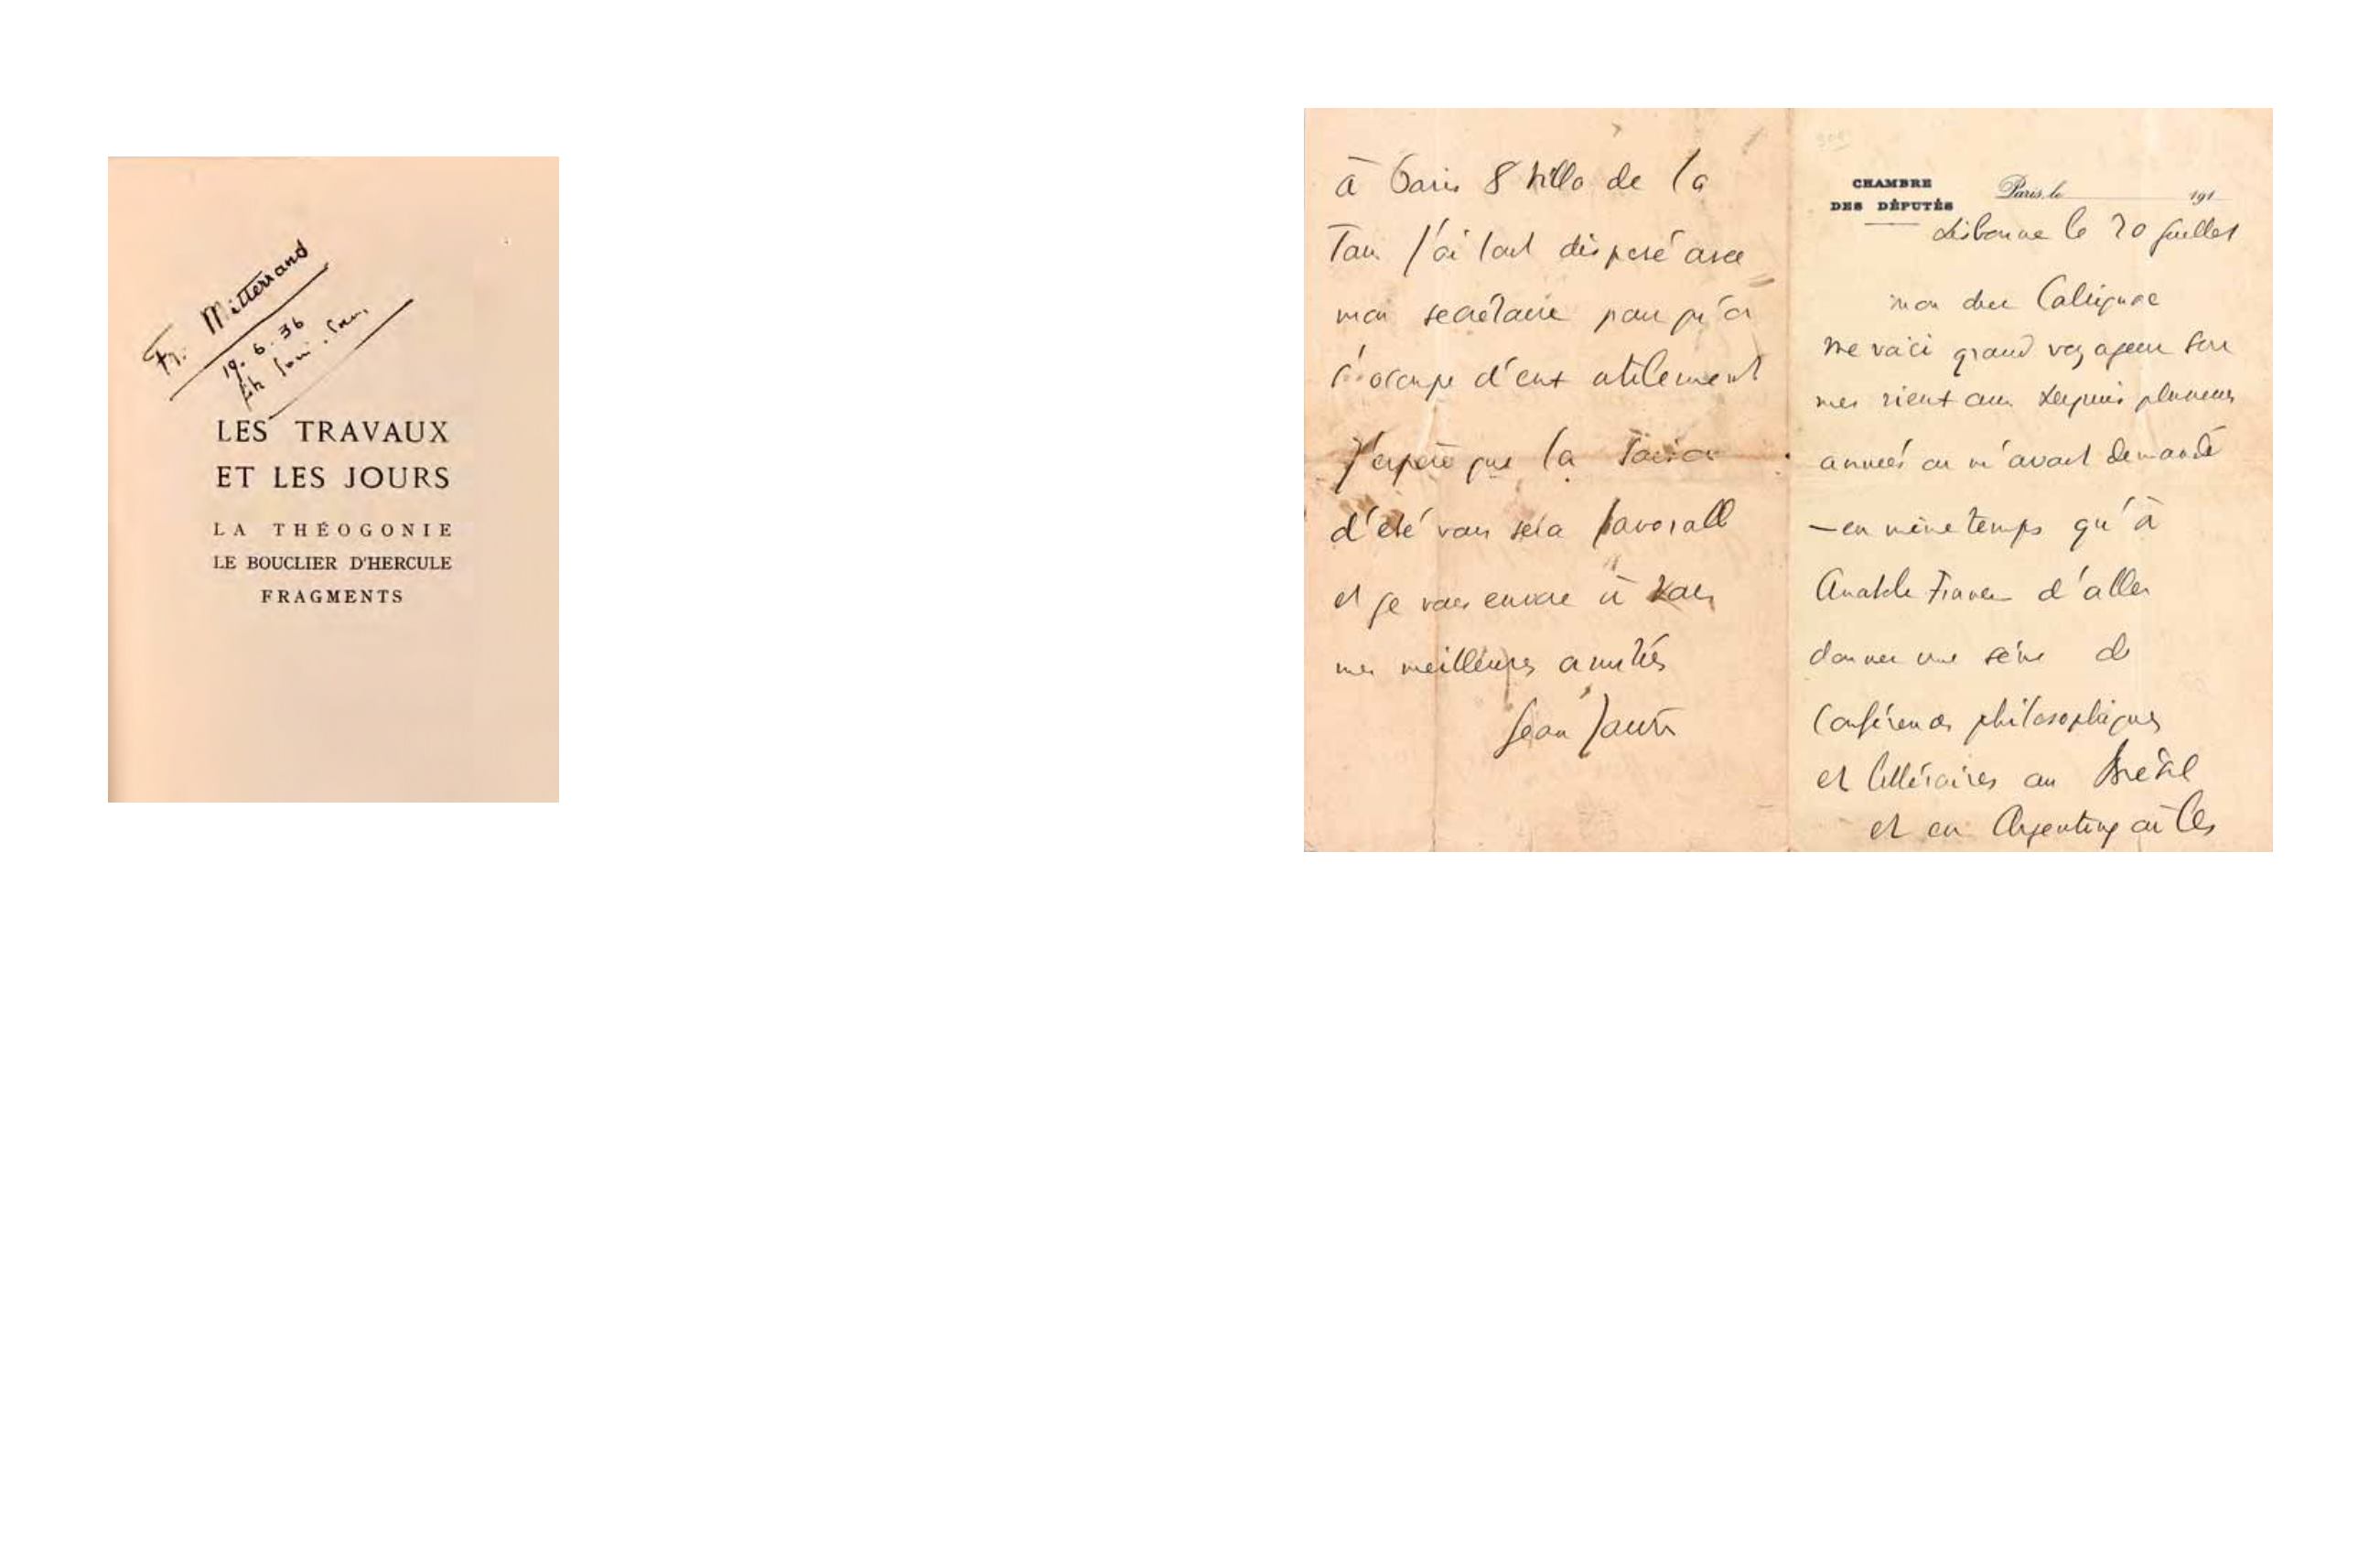 Fr. Mitterrand
19. 6. 36
LES TRAVAUX
ET LES JOURS
LA THÉOGONIE
LE BOUCLIER D'HERCULE
FRAGMENTS
à Paris 8 villa de la
Tour j'ai tout disposé avec
mon secrétaire pour qu'on
s'occupe d'eux utilement
J'espère que la
d'été vous sera favorable
et je vous envoie à vous
mes meilleures amitiés
Jean Jaurès
CHAMBRE
DES DÉPUTÉS
Paris, le 191
Lisbonne le 20 juillet
mon cher Calvignac
me voici grand voyageur sur
mes vieux ans depuis plusieurs
années on m'avait demandé
— en même temps qu'à
Anatole France d'aller
donner une série de
conférences philosophiques
et littéraires au Brésil
et en Argentine où les